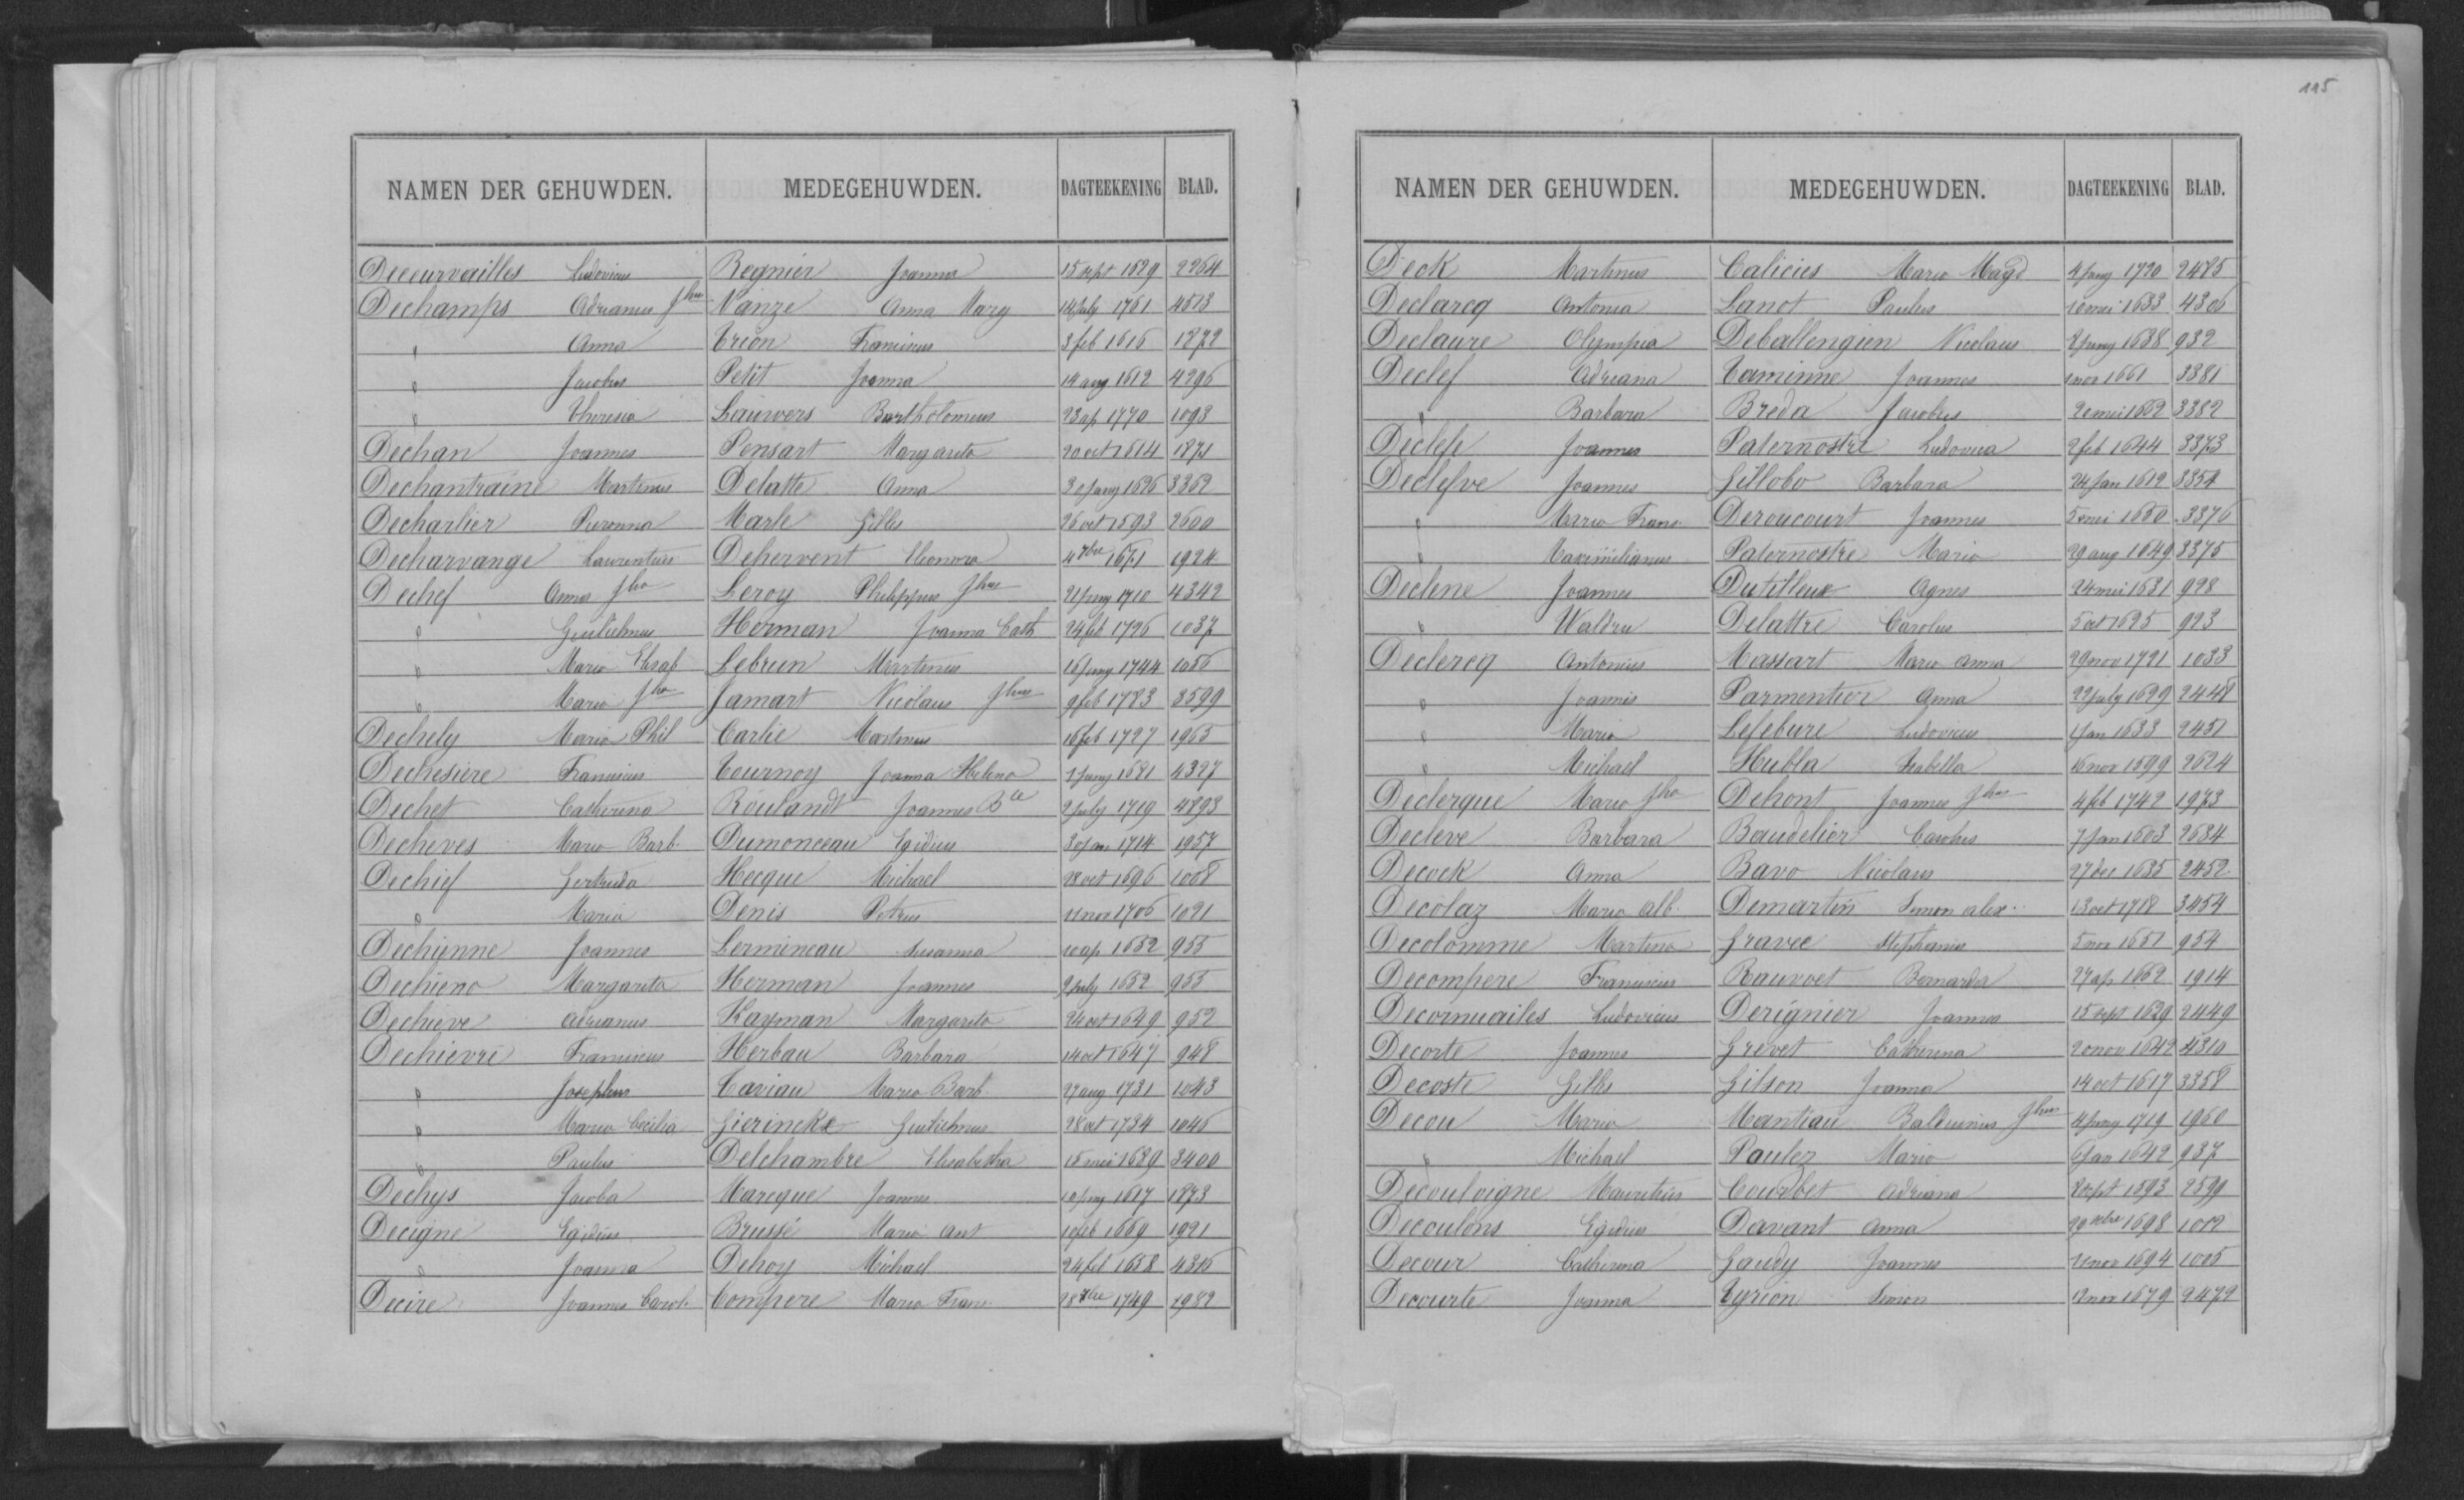 115
NAMEN DER GEHUWDEN. MEDEGEHUWDEN. DAGTEEKENING BLAD.
Dececurvailles Ludovicus Regnier Joanna 15 sept 1629 2264
Dechamps Adrianus Jhus Nainze Anna Marg 14 july 1761 4513
" Anna Trion Franciscus 3 feb 1616 1872
" Jacobus Petit Joanna 14 aug 1612 4296
" Theresia Lauwers Bartholomeus 23 ap 1770 1093
Dechan Joannes Pensart Margareta 20 oct 1614 1871
Dechantraine Martinus Delatte Anna 30 juny 1626 3362
Decharlier Peronna Marle Gilles 26 oct 1593 2600
Decharvange Laurentius Dehervent Eleonora 4 7bre 1671 1924
Dechef Anna Jha Leroy Philippus Jhus 21 juny 1710 4342
" Guilielmus Herman Joanna Cath 24 feb 1726 1037
" Maria Elisab Lebrun Martinus 16 juny 1744 1056
" Maria Jha Jamart Nicolaus Jhus 9 feb 1783 3599
Dechely Maria Phil Carlie Martinus 16 feb 1727 1965
Dechesiere Franciscus Tournoy Joanna Helena 1 juny 1681 4327
Dechet Catherina Roulandt Joannes Bte 2 july 1719 4893
Decheves Maria Barb. Dumonceau Egidius 30 jan 1714 1957
Dechief Gertruda Hecque Michael 28 oct 1696 1008
" Maria Denis Petrus 11 nov 1706 1021
Dechienne Joannes Lermineau Susanna 10 ap 1652 955
Dechieno Margareta Herman Joannes 9 july 1652 955
Dechieve Adrianus Kayman Margareta 24 oct 1649 952
Dechievre Franciscus Herbau Barbara 14 oct 1647 948
" Josephus Caviau Maria Barb. 27 aug 1731 1043
" Maria Cecilia Gierinckx Guilielmus 28 oct 1734 1046
" Paulus Delchambre Elisabetha 15 mei 1689 3400
Dechys Jacoba Marcque Joannes 10 juny 1617 1873
Decigne Egidius Brussé Maria Ant 10 feb 1669 1921
" Joanna Dehoy Michael 24 feb 1658 4316
Decire Joannes Carol. Compere Maria Franc. 28 7bre 1749 1982
NAMEN DER GEHUWDEN. MEDEGEHUWDEN. DAGTEEKENING BLAD.
Deck Martinus Calicies Maria Magd 4 juny 1720 2485
Declarcq Antonia Lanct Paulus 10 mei 1633 4306
Declaure Olympia Deballengien Nicolaus 8 juny 1638 932
Declef Adriana Taminne Joannes 1 nov 1661 3381
" Barbara Breda Jacobus 20 mei 1662 3382
Declefs Joannes Paternostre Ludovica 2 feb 1644 3373
Declefve Joannes Gillobo Barbara 24 jan 1612 3354
" Maria Franc. Deroucourt Joannes 5 mei 1650 3376
" Maximilianus Paternostre Maria 29 aug 1649 3375
Declene Joannes Dutilleux Agnes 24 mei 1631 928
" Waldru Delattre Carolus 5 oct 1625 923
Declercq Antonius Massart Maria Anna 29 nov 1721 1033
" Joannis Parmentier Anna 22 july 1629 2448
" Maria Lefebure Ludovicus 1 jan 1633 2451
" Michael Hubla Isabella 16 nov 1599 2624
Declerque Maria Jha Dehont Joannes Jhus 4 feb 1742 1973
Decleve Barbara Baudelier Carolus 7 jan 1603 2634
Decock Anna Bavo Nicolaus 27 dec 1635 2452
Decolaz Maria Alb. Demartin Simon Alex. 13 oct 1718 3454
Decolomme Martina Gravee Stephanus 5 nov 1651 954
Decompere Franciscus Rauwoet Bernarda 27 ap 1662 1914
Decornuailes Ludovicus Derignier Joannes 15 sept 1629 2449
Decorte Joannes Grevet Catherina 20 nov 1642 4310
Decoste Gilles Gilson Joanna 14 oct 1617 3358
Decou Maria Mantiau Balduinus Jhus 4 juny 1719 1960
" Michael Paulez Maria 6 jan 1642 937
Decouloigne Mauritius Courbet Adriana 8 sept 1593 2599
Decoulons Egidius Davant Anna 29 xbre 1698 1012
Decour Catherina Gaudy Joannes 21 nov 1694 1005
Decourte Joanna Tyrion Simon 12 nov 1679 2472